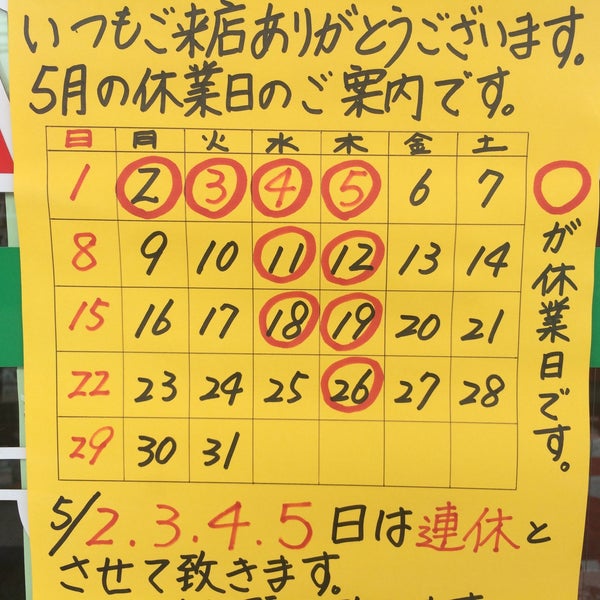 いつもご来店ありがとうございます。
5月の休業日のご案内です。
日 月 火 水 木 金 土
1 2 3 4 5 6 7
8 9 10 11 12 13 14
15 16 17 18 19 20 21
22 23 24 25 26 27 28
29 30 31
○が休業日です。
5/2.3.4.5日は連休と
させて致きます。